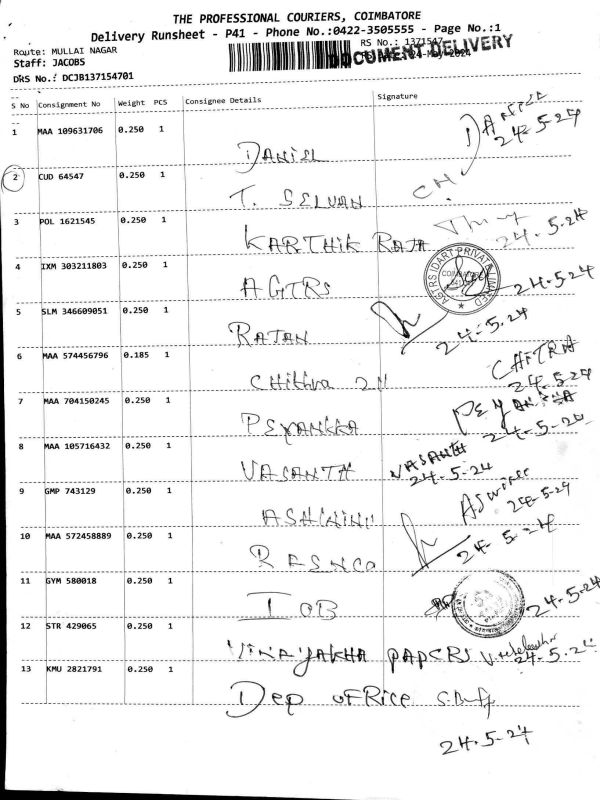 THE PROFESSIONAL COURIERS, COIMBATORE
Delivery Runsheet - P41 - Phone No.:0422-3505555 - Page No.:1
Route: MULLAI NAGAR RS No.: 1371547
Staff: JACOBS 24-May-2024
DOCUMENT DELIVERY
DRS No.: DCJB137154701
S No Consignment No Weight PCS Consignee Details Signature
1 MAA 109631706 0.250 1 DANIEL 24.5.24
2 CUD 64547 0.250 1 T. SELVAN
3 POL 1621545 0.250 1 KARTHIK RAJA 24.5.24
4 IXM 303211803 0.250 1 AGTRS AGTRS IDART PRIVATE LIMITED 24.5.24
5 SLM 346609051 0.250 1 RAJAN 24.5.24
6 MAA 574456796 0.185 1 Chithra CHITRA 24.5.24
7 MAA 704150245 0.250 1 24.5.24
8 MAA 105716432 0.250 1 VASANTH VASANTH 24.5.24
9 GMP 743129 0.250 1 24.5.24
10 MAA 572458889 0.250 1 24.5.24
11 GYM 580018 0.250 1 IOB 24.5.24
12 STR 429065 0.250 1 VINAYAKHA PAPERS 24.5.24
13 KMU 2821791 0.250 1 Dep OFFice
24.5.24